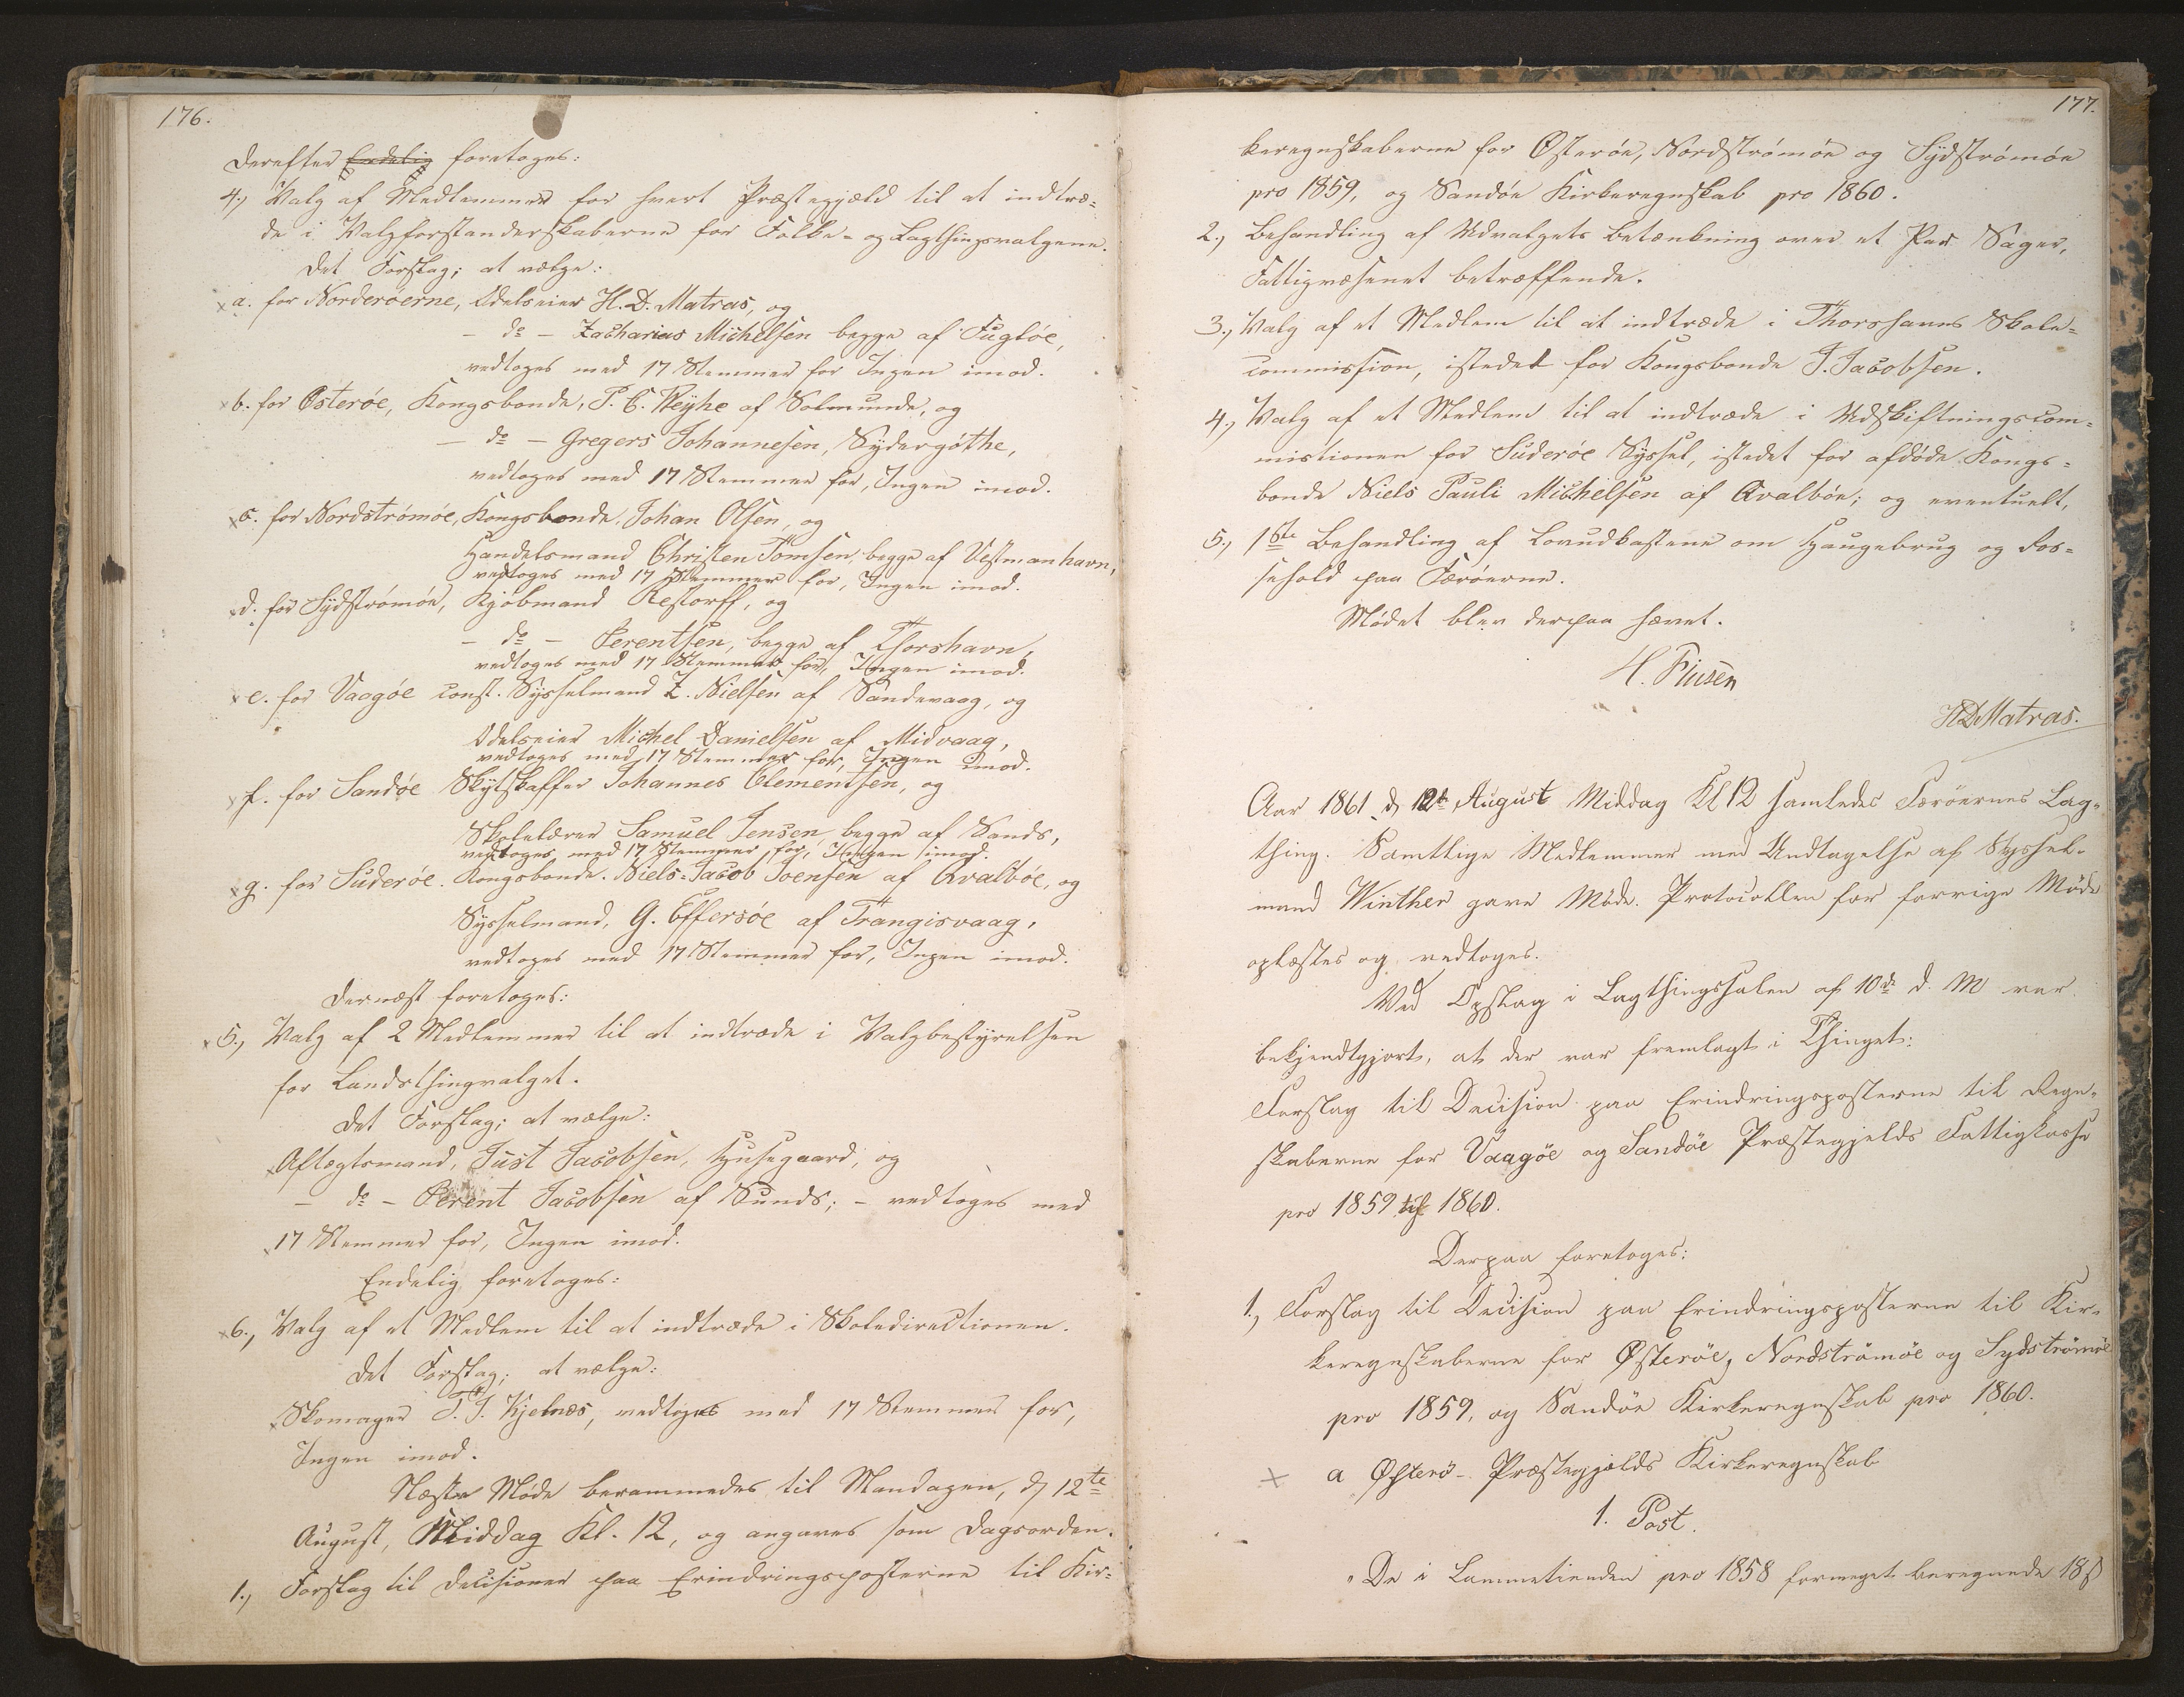 176.
Derefter Endelig foretoges:
4., Valg af Medlemmer for hvert Præstegjæld til at indtræ-
de i Valgforstanderskaberne for Folke- og Lagthingsvalgene.
Det Forslag; at vælge:
a. for Norderöerne, Odelseier H. D. Matras, og
– do – Zacharias Michelsen begge af Fuglöe,
vedtoges med 17 Stemmer for Ingen imod.
b. for Österöe, Kongsbonde, P. C. Weyhe af Solmunde, og
– do – Gregers Johannesen, Sydergöthe,
vedtoges med 17 Stemmer for, Ingen imod.
c. for Nordströmöe, Kongsbonde, Johan Olsen, og
Handelsmand Christen Tömsen, begge af Vestmanhavn,
vedtoges med 17 Stemmer for, Ingen imod.
d. for Sydströmöe, Kjöbmand Restorff, og
– do – Berentsen, begge af Thorshavn,
vedtoges med 17 Stemmer for, Ingen imod.
e. for Vaagöe const. Sysselmand Z. Nielsen af Sandevaag, og
Odelseier Michel Danielsen af Midvaag,
vedtoges med 17 Stemmer for, Ingen imod.
f. for Sandöe Skytskaffer Johannes Clementsen, og
Skolelærer Samuel Jensen begge af Sands,
vedtoges med 17 Stemmer for, Ingen imod.
g. for Suderöe. Kongsbonde. Niels-Jacob Joensen af Qvalböe, og
Sysselmand, G. Effersöe af Trangisvaag,
vedtoges med 17 Stemmer for, Ingen imod.
Dernæst foretoges:
5., Valg af 2 Medlemmer til at indtræde i Valgbestyrelsen
for Landsthingvalget.
Det Forslag; at vælge:
Aftægtsmand, Just Jacobsen, Husegaard, og
– do – Berent Jacobsen af Sunds; – vedtoges med
17 Stemmer for, Ingen imod.
Endelig foretoges:
6., Valg af et Medlem til at indtræde i Skoledirectionen.
Det Forslag; at vælge:
Skomager T. J. Kjelnæs, vedtoges med 17 Stemmer for,
Ingen imod.
Næste Möde berammedes til Mandagen, d. 12te
August, Middag Kl. 12, og angaves som Dagsorden.
1., Forslag til Decisioner paa Erindringsposterne til Kir-
177.
keregnskaberne for Österöe, Nordströmöe og Sydströmöe
pro 1859, og Sandöe Kirkeregnskab pro 1860.
2., Behandling af Udvalgets Betænkning over et Par Sager,
Fattigvæsenet betræffende.
3., Valg af et Medlem til at indtræde i Thorshavns Skole-
commission, istedet for Kongsbonde J. Jacobsen.
4., Valg af et Medlem til at indtræde i Udskiftningscom-
missionen for Suderöe Syssel, istedet for afdöde Kongs-
bonde Niels Pauli Michelsen af Qvalböe; og eventuelt,
5., 1ste Behandling af Lovudkastene om Haugebrug og Fos-
sehold paa Færöerne.
Mödet blev derpaa hævet.
H. Finsen
HDMatras.
Aar 1861 d 12te August Middag Kl 12 samledes Færöernes Lag-
thing. Samtlige Medlemmer med Undtagelse af Syssel-
mand Winther gave Möde. Protocollen for forrige Möde
oplæstes og vedtoges.
Ved Opslag i Lagthingssalen af 10de d. M var
bekjendtgjort, at der var fremlagt i Thinget:
Forslag til Decision paa Erindringsposterne til Regn-
skaberne for Vaagöe og Sandöe Præstegjelds Fattigkasse
pro 1859 til 1860.
Derpaa foretoges:
1., Forslag til Decision paa Erindringsposterne til Kir-
keregnskaberne for Österöe, Nordströmöe og Sydströmöe
pro 1859, og Sandöe Kirkeregnskab pro 1860.
a Österö- Præstegjælds Kirkeregnskab
1. Post.
"De i Lammetienden pro 1858 formeget beregnede 18 ß